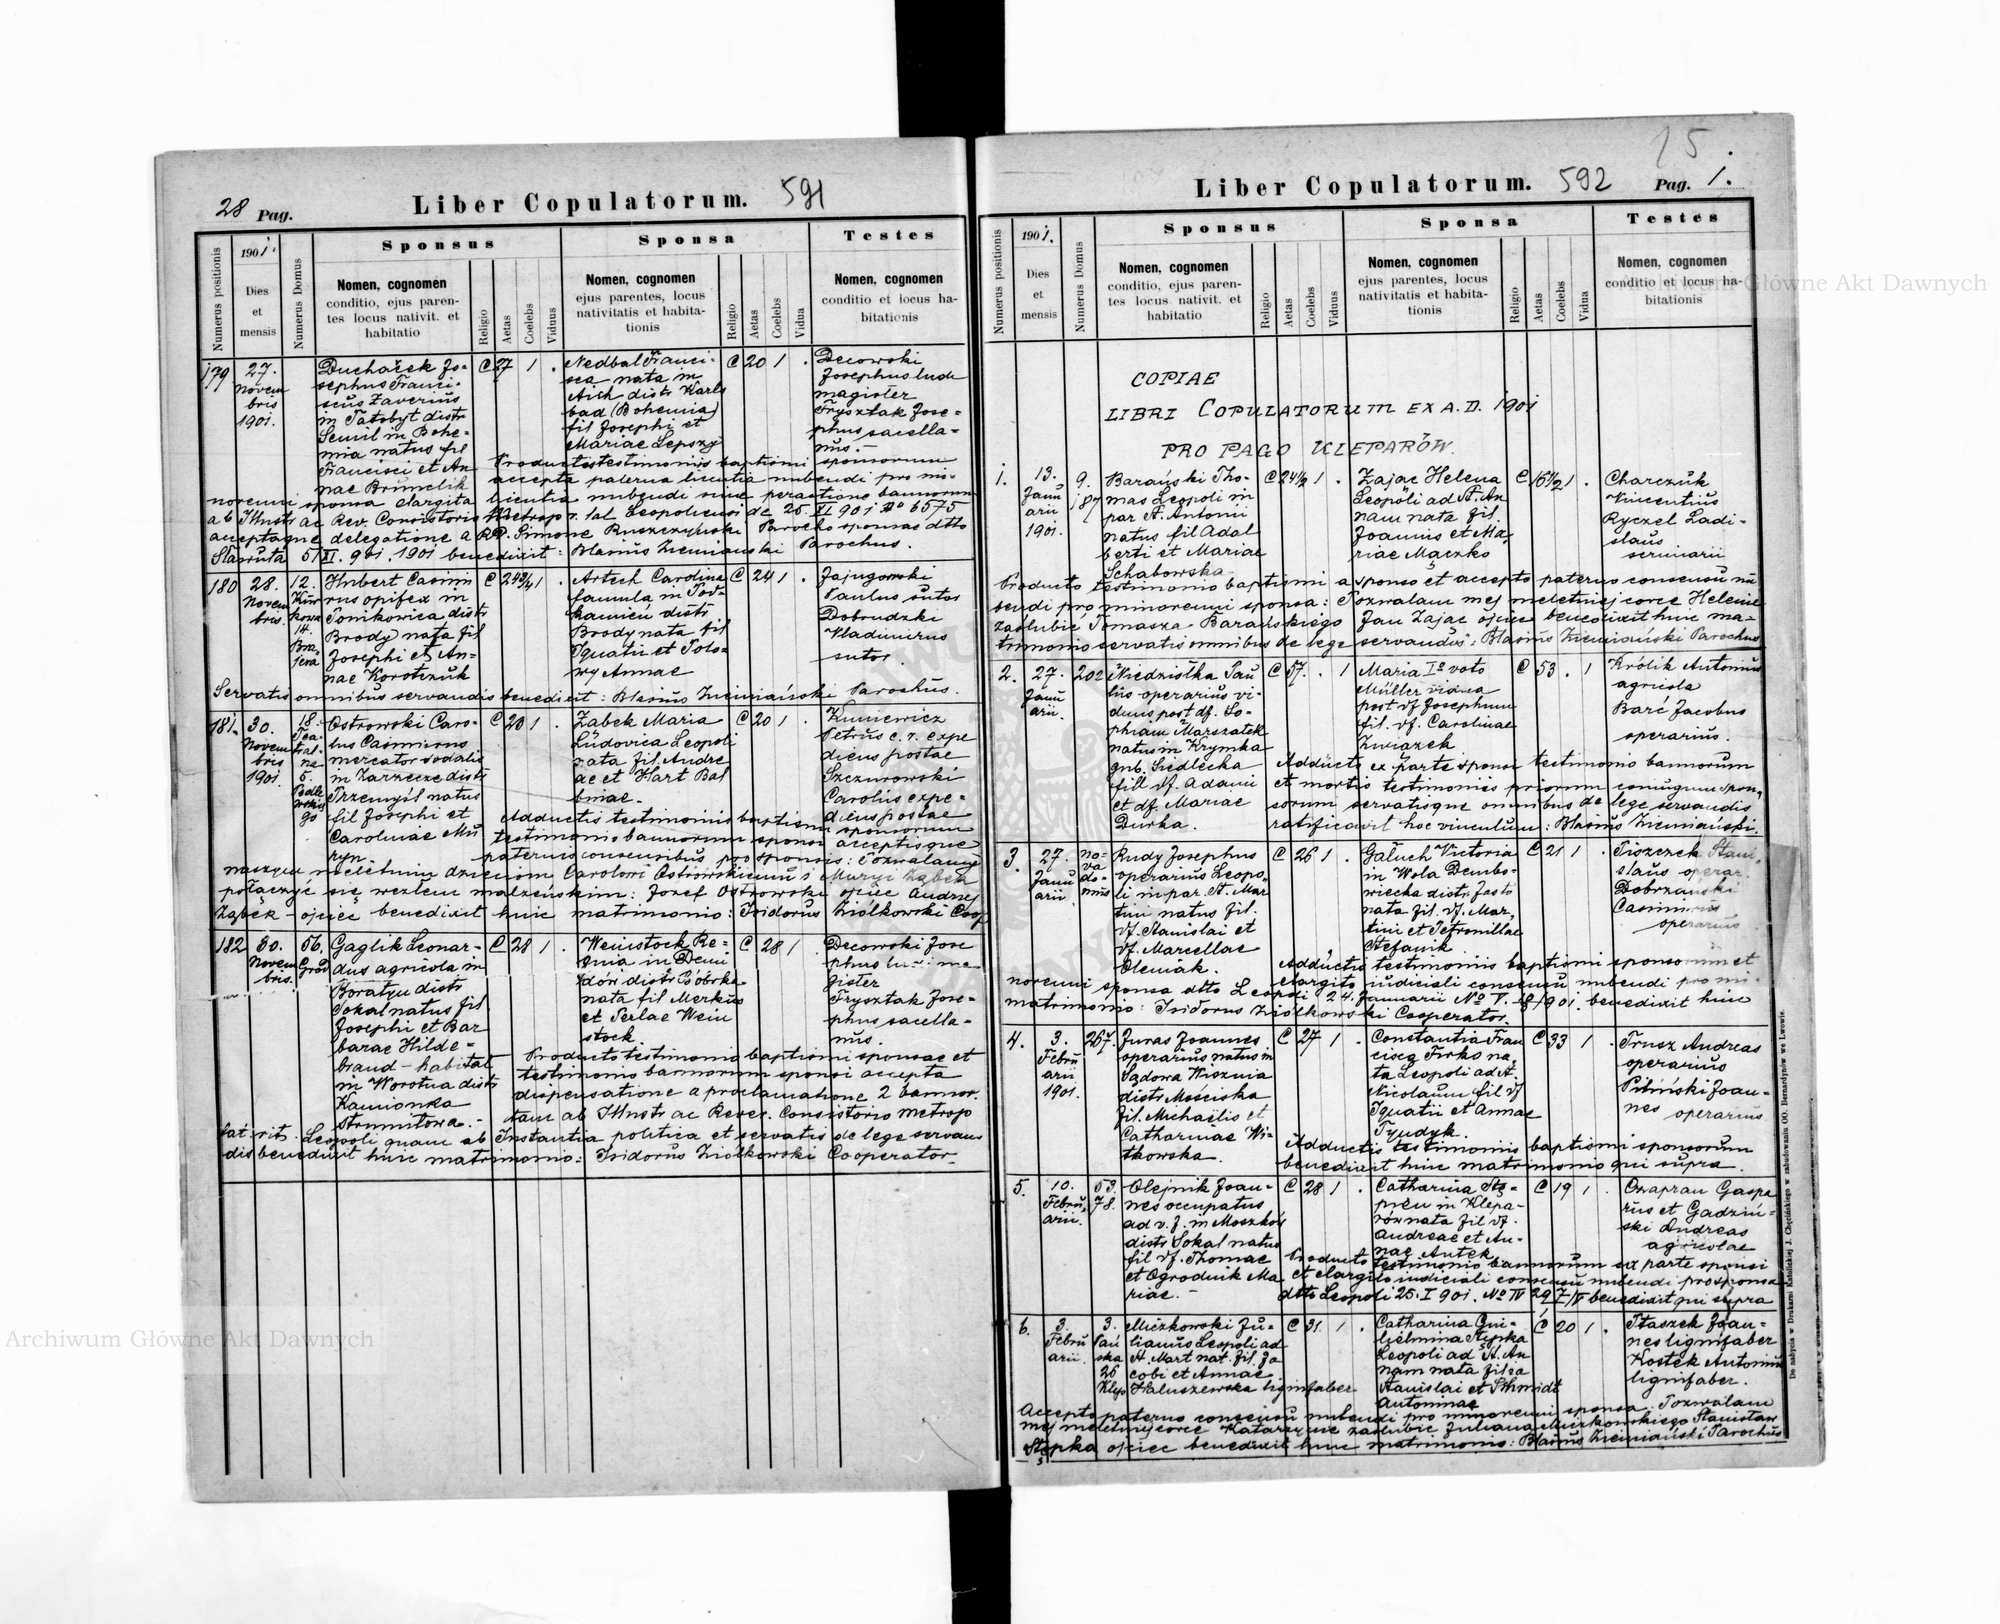 28 Pag.
Liber Copulatorum. 591
Numerus positionis
1901.
Dies
et
mensis
Numerus Domus
Sponsus
Nomen, cognomen
conditio, ejus paren-
tes locus nativit. et
habitatio
Religio
Aetas
Coelebs
Viduus
Sponsa
Nomen, cognomen
ejus parentes, locus
nativitatis et habita-
tionis
Religio
Aetas
Coelebs
Vidua
Testes
Nomen, cognomen
conditio et locus ha-
bitationis
179
27.
Novem
bris
1901.
Ducháček Jo-
sephus Franci-
scus Xaverius
in Tatobyt distr
Semil in Bohe-
mia natus fil
Francisci et An-
nae Brůnclik
C 27 1 .
Nedbal Franci-
sca nata in
Aich distr Karls
bad (Bohemia)
fil Josephi et
Mariae Lepszy
C 20 1 .
Decowski
Josephus ludi
magister
Frysztak Jose-
phus sacella-
nus.
Productis testimoniis baptismi sponsorum
accepta paterna licentia nubendi pro mi-
norenni sponsa elargita licentia nubendi sine peractione bannorum
ab Illustr ac Rev. Consistorio Metrop r. lat Leopoliensi de 25. XI 901 No 6575
acceptaque delegatione a RP. Simone Ruszczyński Parocho sponsas dtto
Stavruta 5/XI. 901. 1901 benedixit: Blasius Ziemiański Parochus.
180
28.
Novem
bris.
12.
Kur
kowa
14.
Bra
jera
Hubert Casimi
rus opifex in
Ponikowica distr
Brody nata fil
Josephi et An-
nae Korotczuk
C 24 3/4 1 .
Artech Carolina
famula in Pod-
kamień distr
Brody nata fil
Ignatii et Poło-
wy Annae
C 24 1 .
Zajugowski
Paulus sutor
Dobrudzki
Vladimirus
sutor.
Servatis omnibus servandis benedixit: Blasius Ziemiański Parochus.
181.
30.
Novem
bris
1901
18.
Tea
tral-
na
5.
Podle
wskie
go
Ostrowski Caro-
lus Casimirus
mercator sodalis
in Zarzecze distr
Przemyśl natus
fil Josephi et
Carolinae Mu
ryn
C 23 1 .
Ząbek Maria
Ludovica Leopoli
nata fil. Andre
ae et Hart Bal
binae.
C 20 1 .
Kuniewicz
Petrus c. r. expe
diens postae
Szczurowski
Carolus expe-
diens postae
Adductis testimoniis baptismi sponsorum
testimonio bannorum sponsi acceptisque
paternis consensibus pro sponsis: Pozwalamy
naszym nieletnim dzieciom Carolowi Ostrowskiemu i Maryi Ząbek
połączyć się węzłem małżeńskim: Józef Ostrowski ojciec Andrzej
Ząbek - ojciec benedixit huic matrimonio: Isidorus Ziółkowski Coop
182
30.
Novem
bris.
56.
Gród
Gaglik Leonar-
dus agricola in
Boratyn distr
Sokal natus fil.
Josephi et Bar
barae Hilde-
brand - habitat
in Worotna distr
Kamionka
Strumiłowa.-
C 28 1 .
Weinstock Re-
gina in Demi
dów distr Bóbrka
nata fil Merkus
et Perlae Wein
stock.
C 28 1
Decowski Jose
phus ludi ma-
gister
Frysztak Jose-
phus sacella-
nus.
Producto testimonio baptismi sponsae et
testimonio bannorum sponsi accepta
dispensatione a proclamatione 2 bannor.
tam ab Illustr ac Rever. Consistorio Metrop
lat. rit. Leopoli quam ab Instantia politica et servatis de lege servan
dis benedixit huic matrimonio: Isidorus Ziółkowski Cooperator
15
Liber Copulatorum. 592 Pag. 1.
Numerus positionis
1901.
Dies
et
mensis
Numerus Domus
Sponsus
Nomen, cognomen
conditio, ejus paren-
tes locus nativit. et
habitatio
Religio
Aetas
Coelebs
Viduus
Sponsa
Nomen, cognomen
ejus parentes, locus
nativitatis et habita-
tionis
Religio
Aetas
Coelebs
Vidua
Testes
Nomen, cognomen
conditio et locus ha-
bitationis
COPIAE
LIBRI COPULATORUM EX A. D. 1901
PRO PAGO KLEPARÓW.
1.
13.
Janu
arii
1901.
9.
187
Barański Tho-
mas Leopoli in
par St. Antonii
natus fil Adal
berti et Mariae
Schabowska
C 24 1/2 1 .
Zając Helena
Leopoli ad St. An
nam nata fil.
Joannis et Ma-
riae Maczko
C 16 1/2 1 .
Charczuk
Vincentius
Ryczel Ladi-
slaus
seminarii
Producto testimonio baptismi a sponso et accepto paterno consensu nu
bendi pro minorenni sponsa: Pozwalam mej nieletniej córce Helenie
zaślubić Tomasza Barańskiego Jan Zając ojciec benedixit huic ma-
trimonio servatis omnibus de lege servandis: Blasius Ziemiański Parochus
2.
27.
Janu
arii.
202
Niedziółka Pau
lus operarius vi-
duus post df. So-
phiam Marszałek
natus in Krymka
gub. Siedlecka
fil df. Adami
et df. Mariae
Durka.
C 57. . 1
Maria Io voto
Müller vidua
post df Josephum
fil. df. Carolinae
Związek
C 53 . 1
Królik Antonius
agricola
Barć Jacobus
operarius.
Adducto ex parte sponsi testimonio bannorum
et mortis testimoniis priorum coniugum spon-
sorum servatisque omnibus de lege servandis
ratificavit hoc vinculum: Blasius Ziemiański.
3.
27.
Janu
arii
no-
va
do-
mus
Rudy Josephus
operarius Leopo-
li in par. St. Mar
tini natus fil.
df. Stanislai et
df. Marcellae
Oleniak.
C 26 1 .
Gałuch Victoria
in Wola Dembo-
wiecka distr. Jasło
nata fil. df. Mar-
tini et Petronillae
Stefanik
C 21 1 .
Piszczek Stani-
slaus operar.
Dobrzański
Casimirus
operarius
Adductis testimoniis baptismi sponsorum et
elargito iudiciali consensu nubendi pro mi-
norenni sponsa dtto Leopoli 24. Januarii No V. 18/901. benedixit huic
matrimonio: Isidorus Ziółkowski Cooperator.
4.
3.
Febru
arii
1901.
267.
Juras Joannes
operarius natus in
Sądowa Wisznia
distr Mościska
fil. Michaëlis et
Catharinae Wi-
tkowska.
C 27 1 .
Constantia Fran
cisca Firko na-
ta Leopoli ad St.
Nicolaum fil df
Ignatii et Annae
Tyndyk.
C 33 1 .
Trusz Andreas
operarius
Pitiński Joan-
nes operarius
Adductis testimoniis baptismi sponsorum
benedixit huic matrimonio qui supra.
5.
10.
Febru
arii.
53.
78.
Olejnik Joan-
nes occupatus
ad v. f. in Moszków
distr Sokal natus
fil df. Thomae
et Ogrodnik Ma
riae.-
C 28 1 .
Catharina Stę-
pień in Klepa-
rów nata fil df.
Andreae et An-
nae Antek
C 19 1 .
Czapran Gaspa
rus et Gadziń-
ski Andreas
agricolae
Producto testimonio bannorum ex parte sponsi
et elargito iudiciali consensu nubendi pro sponsa
dtto Leopoli 25. I 901. No IV 29 7/IV benedixit qui supra
6.
3.
Febru
arii.
3.
Pań
ska
26
Klep
Miczkowski Ju-
lianus Leopoli ad
St. Mart nat. fil. Ja
cobi et Annae
Haluszewska lignifaber
C 31. 1 .
Catharina Gui-
lielmina Stępka
Leopoli ad St. An
nam nata filia
Stanislai et Schmidt
Antoninae
C 20 1 .
Staszek Joan-
nes lignifaber
Kostek Antonius
lignifaber.
Accepto paterno consensu nubendi pro minorenni sponsa: Pozwalam
mej nieletniej córce Katarzynie zaślubić Juliana Miczkowskiego Stanisław
Stępka ojciec benedixit huic matrimonio: Blasius Ziemiański Parochus
Do nabycia w Drukarni Katolickiej J. Chęcińskiego w zabudowaniu OO. Bernardynów we Lwowie.
Archiwum Główne Akt Dawnych
Archiwum Główne Akt Dawnych